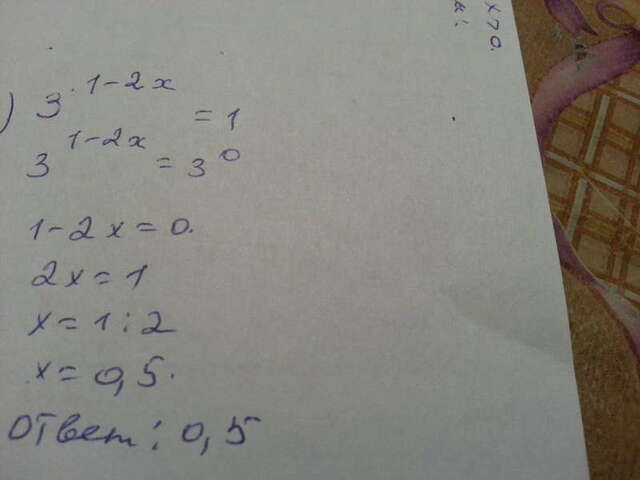 ) 3^{1-2x} = 1
3^{1-2x} = 3^0
1-2x=0.
2x=1
x=1:2
x=0,5.
Ответ: 0,5
x>0.